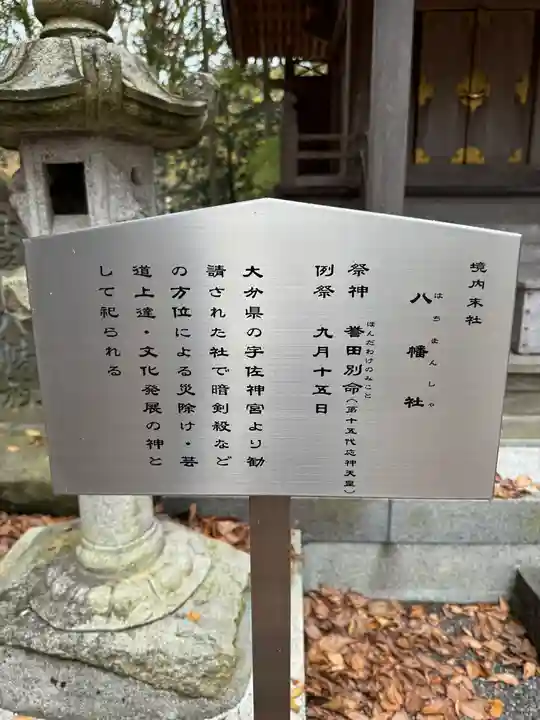 境内末社
八幡社
はちまんしゃ
祭神 誉田別命(第十五代応神天皇)
ほんだわけのみこと
例祭 九月十五日
大分県の宇佐神宮より勧
請された社で暗剣殺など
の方位による災除け・芸
道上達・文化発展の神と
して祀られる